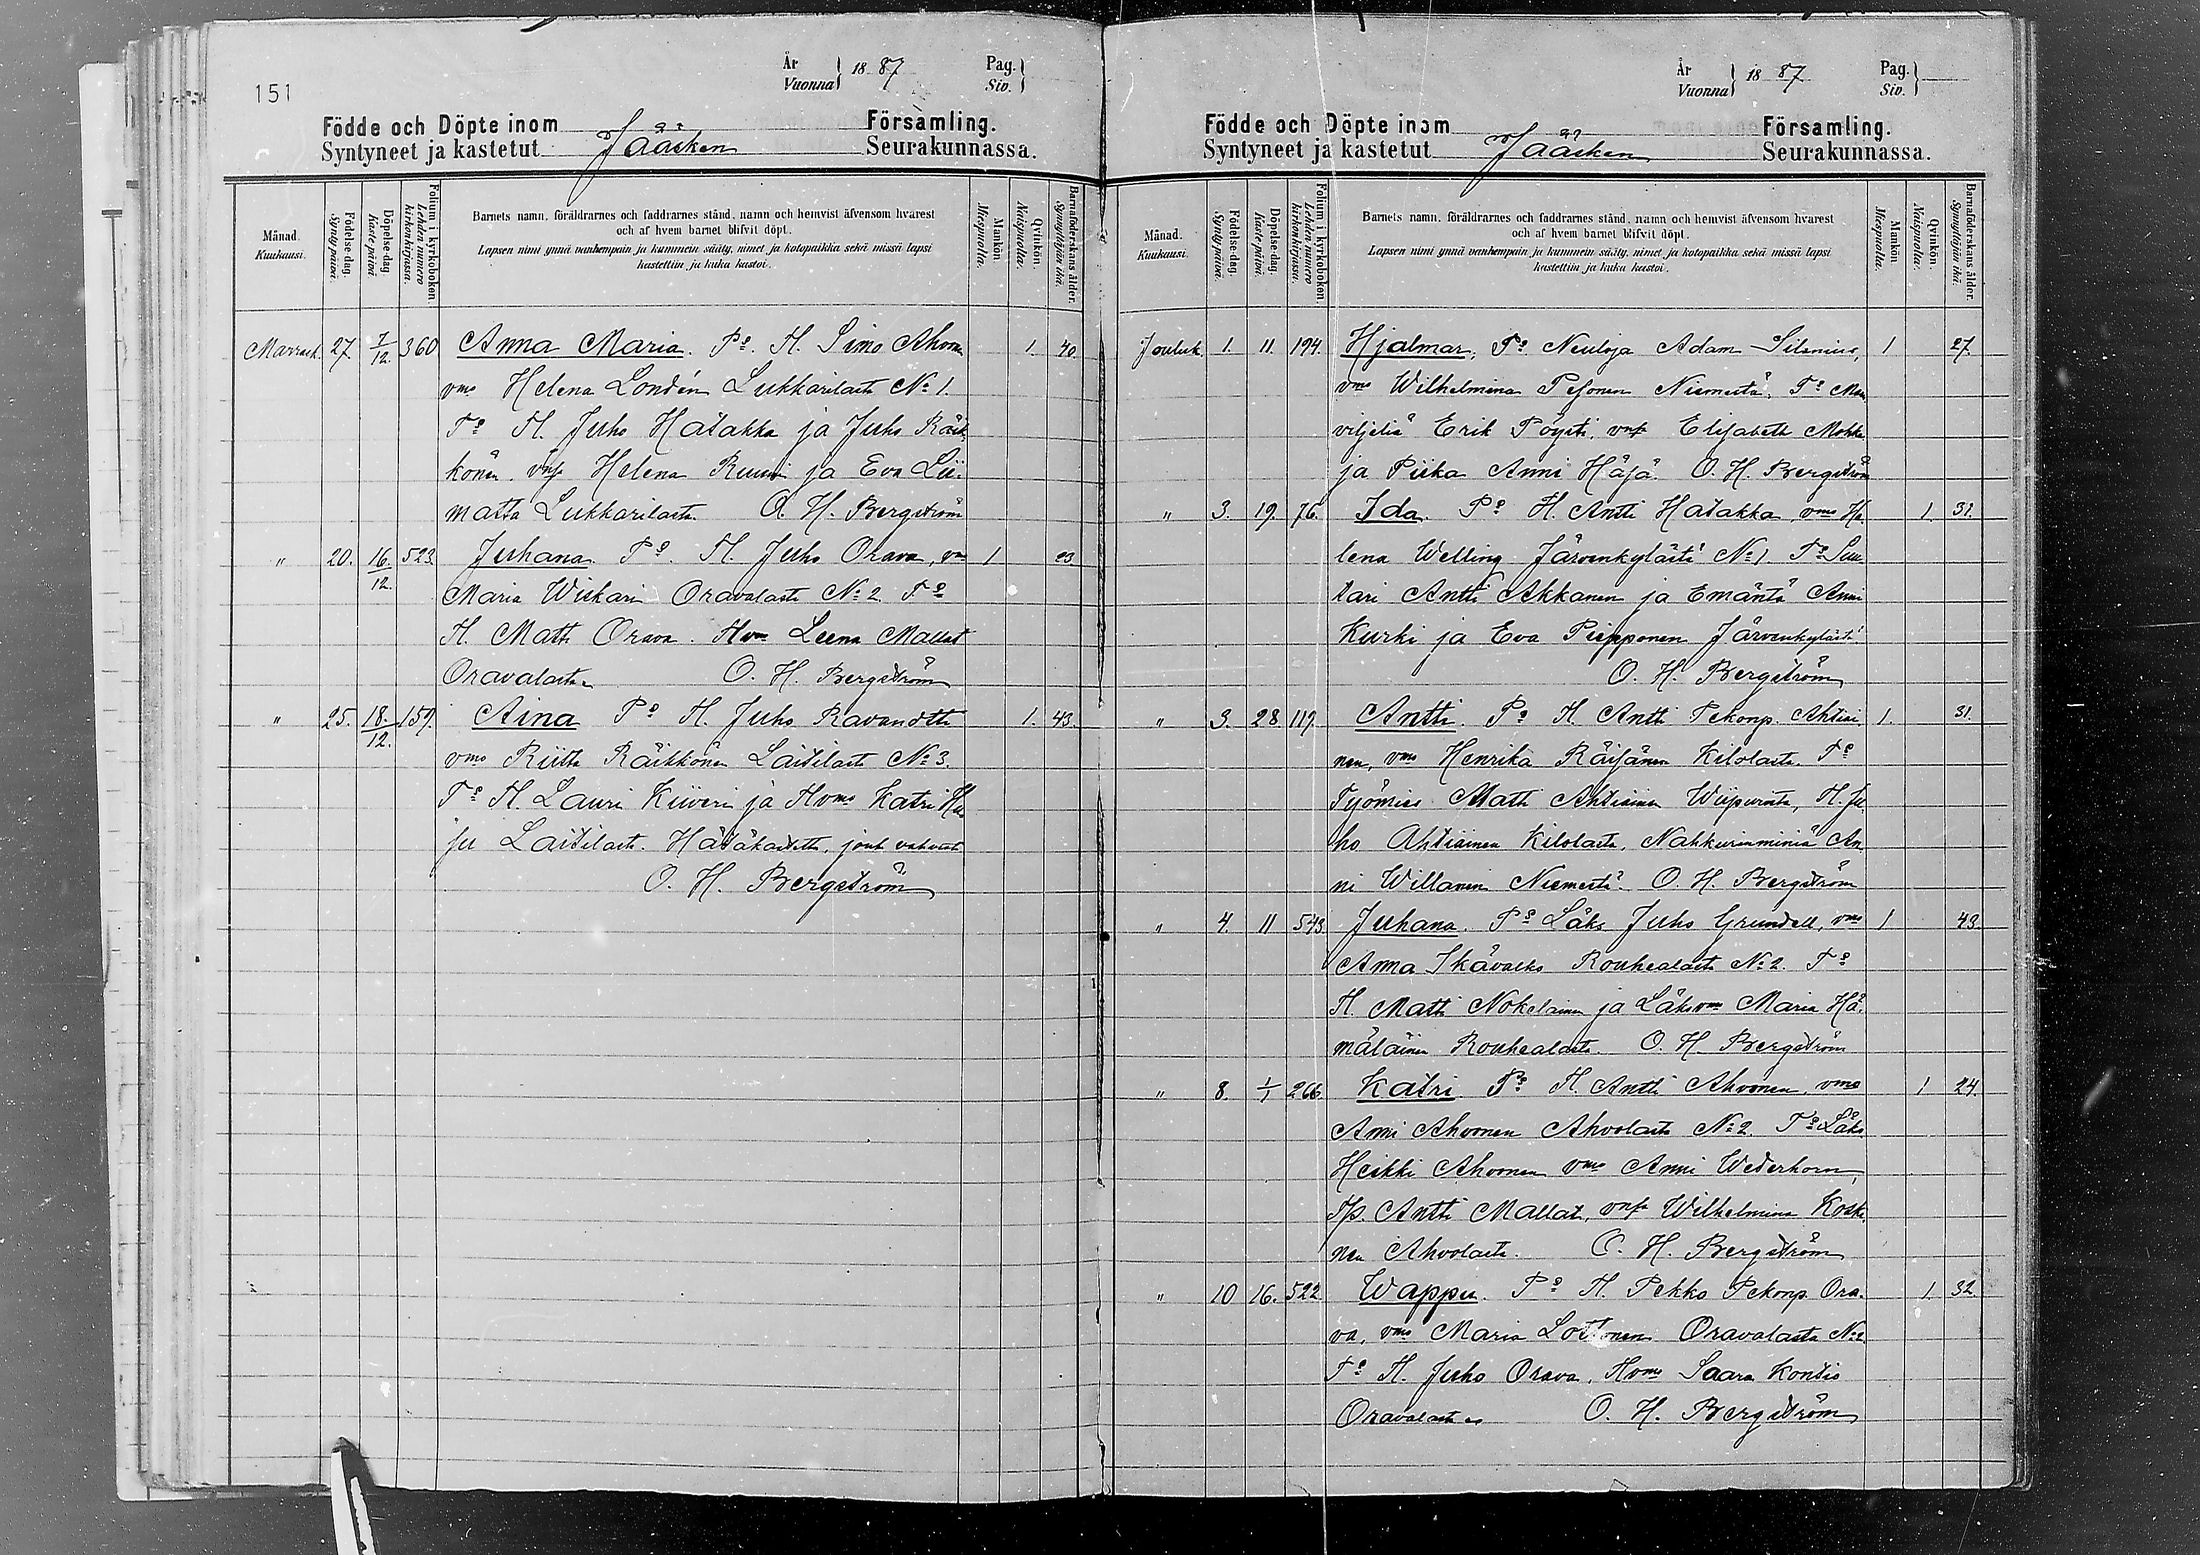 151
År
Vuonna } 18 87
Pag.
Siv. }
Födde och Döpte inom
Syntyneet ja kastetut Jääsken
Församling.
Seurakunnassa.
Månad.
Kuukausi.
Födelse-dag.
Syntypäivä.
Döpelse-dag.
Kastepäivä.
Folium i kyrkoboken.
Lehden numero kirkonkirjassa.
Barnets namn, föräldrarnes och faddrarnes stånd, namn och hemvist äfvensom hvarest
och af hvem barnet blifvit döpt.
Lapsen nimi ynnä vanhempain ja kummein sääty, nimet ja kotopaikka sekä missä lapsi
kastettiin ja kuka kastoi.
Mankön.
Miespuolia.
Qvinkön.
Naispuolia.
Barnaföderskans ålder.
Synnyttäjän ikä.
Marrask. 27. 7/12. 360 Anna Maria. Po. H. Simo Ahvon 1. 40.
vmo Helena Londén Lukkarilasta No 1.
To H. Juho Hatakka ja Juho Räik
könen, vnf Helena Ruuni ja Eva Lii-
matta Lukkarilasta. O. H. Bergström
" 20. 16/12. 523. Juhana. Po. H. Juho Orava, vm 1 23
Maria Wiskari Oravalasta No 2 To
H. Matti Orava. Hvm Leena Mallat
Oravalasta O. H. Bergström
" 25. 18./12. 159. Aina Po H. Juho Ravandtti 1. 43.
vmo Riitta Räikkönen Laitilasta No 3.
To H. Lauri Kiiveri ja Hvmo Katri Ha
ju Laitilasta. Hätäkastetta, jonk vahvist
O. H. Bergström
År
Vuonna } 18 87
Pag.
Siv. }
Födde och Döpte inom
Syntyneet ja kastetut Jääsken
Församling.
Seurakunnassa.
Månad.
Kuukausi.
Födelse-dag.
Syntypäivä.
Döpelse-dag.
Kastepäivä.
Folium i kyrkoboken.
Lehden numero kirkonkirjassa.
Barnets namn, föräldrarnes och faddrarnes stånd, namn och hemvist äfvensom hvarest
och af hvem barnet blifvit döpt.
Lapsen nimi ynnä vanhempain ja kummein sääty, nimet ja kotopaikka sekä missä lapsi
kastettiin ja kuka kastoi.
Mankön
Miespuolia.
Qvinkön.
Naispuolia.
Barnaföderskans ålder.
Synnyttäjän ikä.
Jouluk. 1. 11. 194. Hjalmar, Po Neuloja Adam Silenius, 1 27.
vmo Wilhelmina Pesonen Niemestä. To Man
viljeliä Erik Pöysti, vnf Elisabeth Mokka
ja Piika Anni Häjä. O. H. Bergström
" 3. 19. 76. Ida. Po H. Antti Hatakka, vmo He 1. 31.
lena Welling Järvenkylästä No 1. To Suu
tari Antti Akkanen ja Emäntä Anni
Kurki ja Eva Piepponen Järvenkylästä
O. H. Bergström
" 3. 28 119. Antti. Po H. Antti Pekonp. Ahtiai 1. 31.
nen, vmo Henrika Räisänen Kilolasta. To
Työmies Matti Ahtiainen Wiipurista, H. Ju
ho Ahtiainen Kilolasta, Nahkurinminiä An
ni Willanen Niemestä. O. H. Bergström
" 4. 11 543. Juhana. Po Läks Juho Grundell, vmo 1 43.
Anna Ikävalko Rouhealasta No 2. To
H. Matti Nokelainen ja Läksvm Maria Hä
mäläinen Rouhealasta. O. H. Bergström
" 8. 1/1 266. Katri. Po H. Antti Ahvonen, vmo 1 24.
Anni Ahvonen Ahvolasta No 2. To Läks
Heikki Ahvonen vmo Anni Wederhorn,
Tp. Antti Mallat, vnf Wilhelmina Koski
nen Ahvolasta. O. H. Bergström
" 10 16. 522 Wappu. Po H. Pekko Pekonp. Ora- 1. 32.
va, vmo Maria Lottonen Oravalasta No 2
To H. Juho Orava, Hvmo Saara Kontio
Oravalasta O. H. Bergström